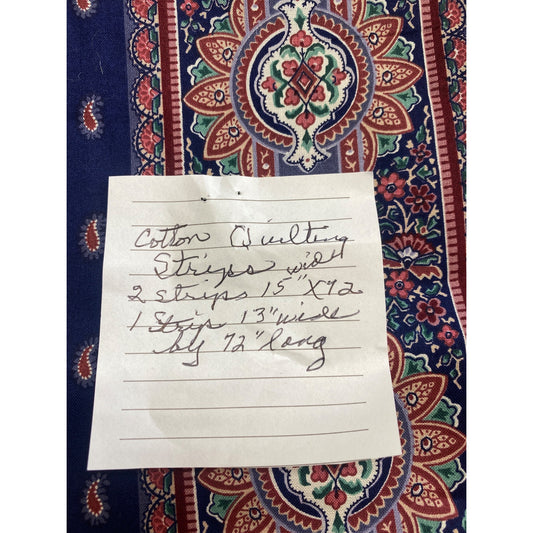 Cotton Quilting
Strips wide
2 strips 15" X72
1 Strip 13" wide
by 72" long